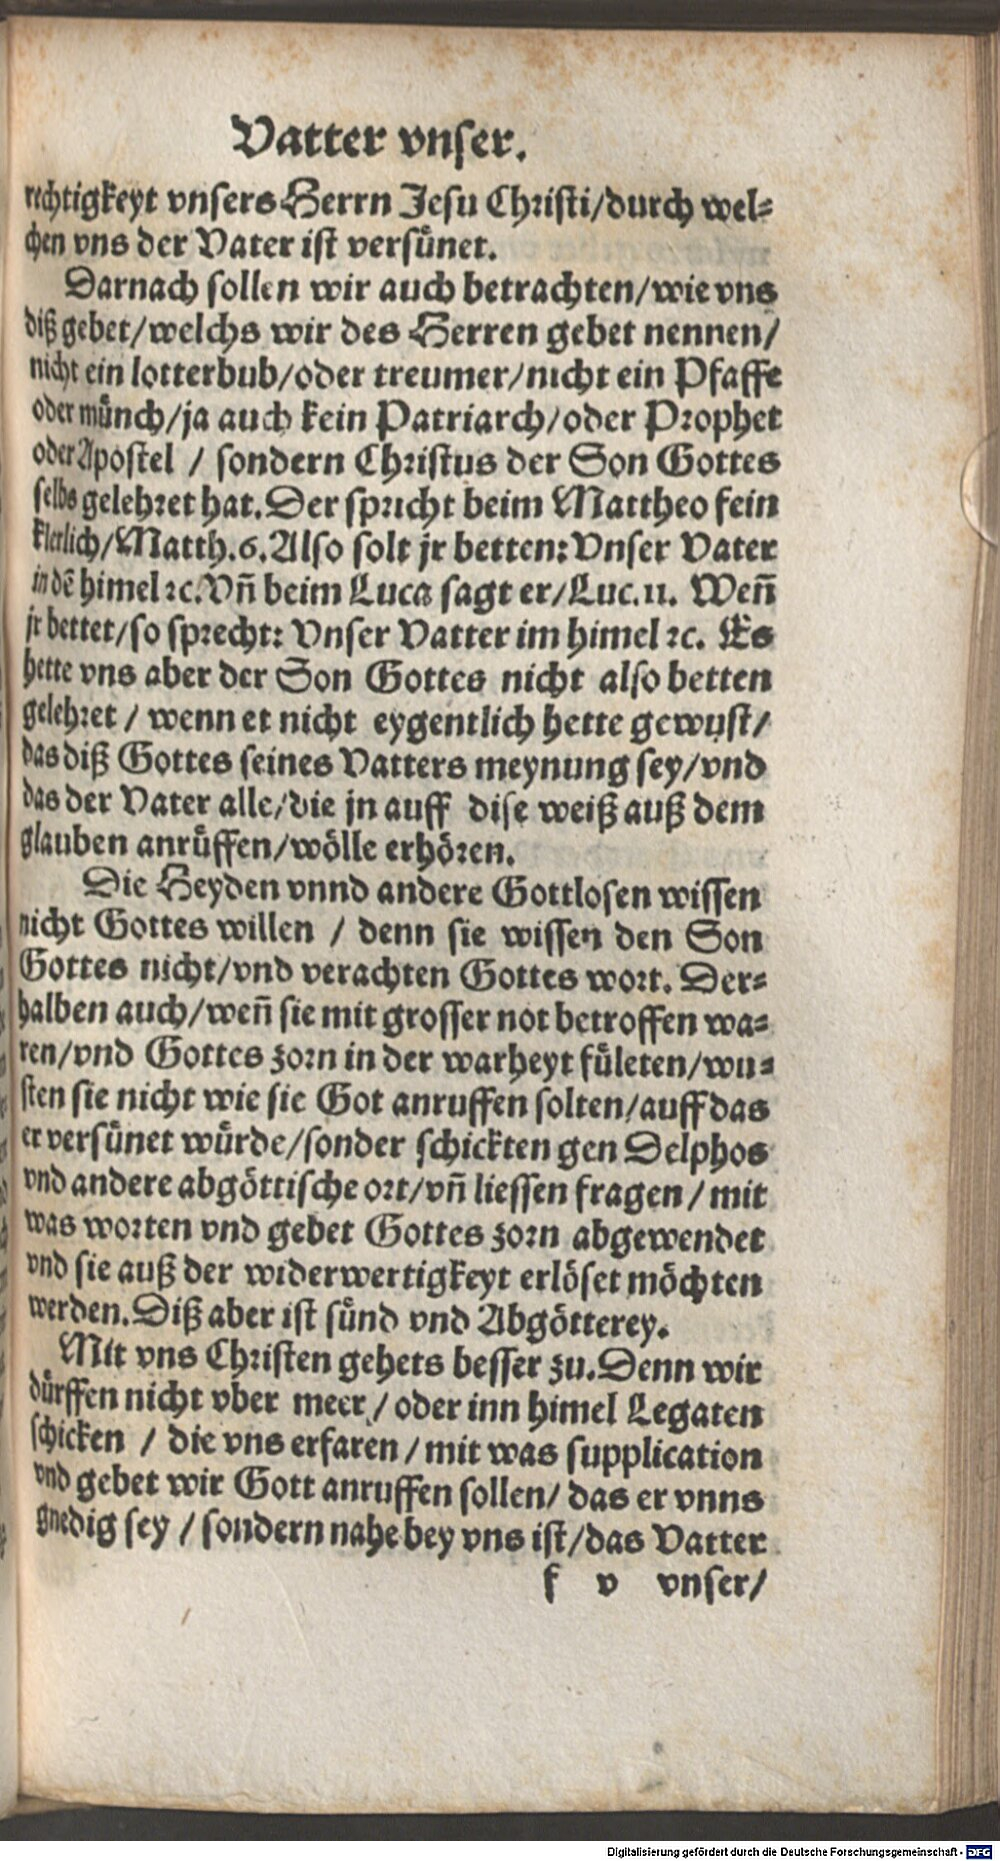 Vatter vnser.
rechtigkeyt vnsers Herrn Jesu Christi/durch wel=
chen vns der Vater ist versünet.
Darnach sollen wir auch betrachten/wie vns
diß gebet/welchs wir des Herren gebet nennen/
nicht ein lotterbub/oder treumer/nicht ein Pfaffe
oder münch/ja auch kein Patriarch/oder Prophet
oder Apostel / sondern Christus der Son Gottes
selbs gelehret hat. Der spricht beim Mattheo fein
klerlich/Matth.6. Also solt jr betten: Vnser Vater
in dē himel ꝛc. Vñ beim Luca sagt er/Luc.11. Weñ
jr bettet/so sprecht: Vnser Vatter im himel ꝛc. Es
hette vns aber der Son Gottes nicht also betten
gelehret / wenn et nicht eygentlich hette gewust/
das diß Gottes seines Vatters meynung sey/vnd
das der Vater alle/die jn auff dise weiß auß dem
glauben anrüffen/wölle erhören.
Die Heyden vnnd andere Gottlosen wissen
nicht Gottes willen / denn sie wissen den Son
Gottes nicht/vnd verachten Gottes wort. Der=
halben auch/weñ sie mit grosser not betroffen wa=
ren/vnd Gottes zorn in der warheyt fületen/wu=
sten sie nicht wie sie Got anruffen solten/auff das
er versünet würde/sonder schickten gen Delphos
vnd andere abgöttische ort/vñ liessen fragen / mit
was worten vnd gebet Gottes zorn abgewendet
vnd sie auß der widerwertigkeyt erlöset möchten
werden. Diß aber ist sünd vnd Abgötterey.
Mit vns Christen gehets besser zu. Denn wir
dürffen nicht vber meer / oder inn himel Legaten
schicken / die vns erfaren / mit was supplication
vnd gebet wir Gott anruffen sollen/ das er vnns
gnedig sey / sondern nahe bey vns ist/das Vatter
f v vnser/
Digitalisierung gefördert durch die Deutsche Forschungsgemeinschaft - DFG